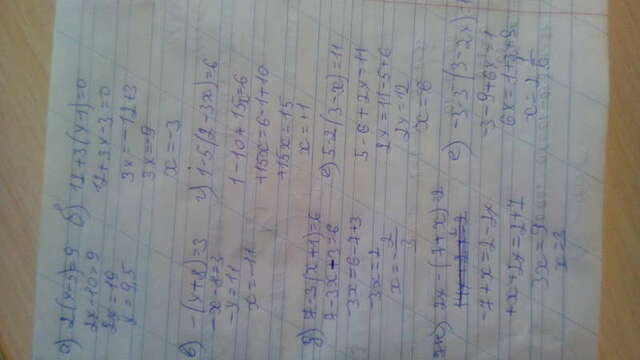 а) 2(x-5)=9
2x-10=9
2x=19
x=9,5
б) 12+3(x-1)=0
12+3x-3=0
3x=-12+3
3x=-9
x=-3
в) -(x+8)=3
-x-8=3
-x=11
x=-11
г) 1-5(2-3x)=6
1-10+15x=6
+15x=6-1+10
+15x=15
x=+1
д) 7-3(x+1)=6
7-3x+3=6
-3x=6-7+3
-3x=2
x=-2/3
е) 5-2(3-x)=11
5-6+2x=11
2x=11-5+6
2x=12
x=6
ж) 2x-(7+x)=2
-7+x=2-2x
+x+2x=2+7
3x=9
x=3
е) -3-3(3-2x)=1
-3-9+6x=1
6x=1+3+9